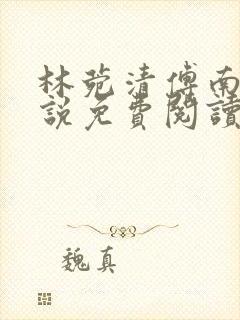 林菀清傅南
說免費閱讀
魏真